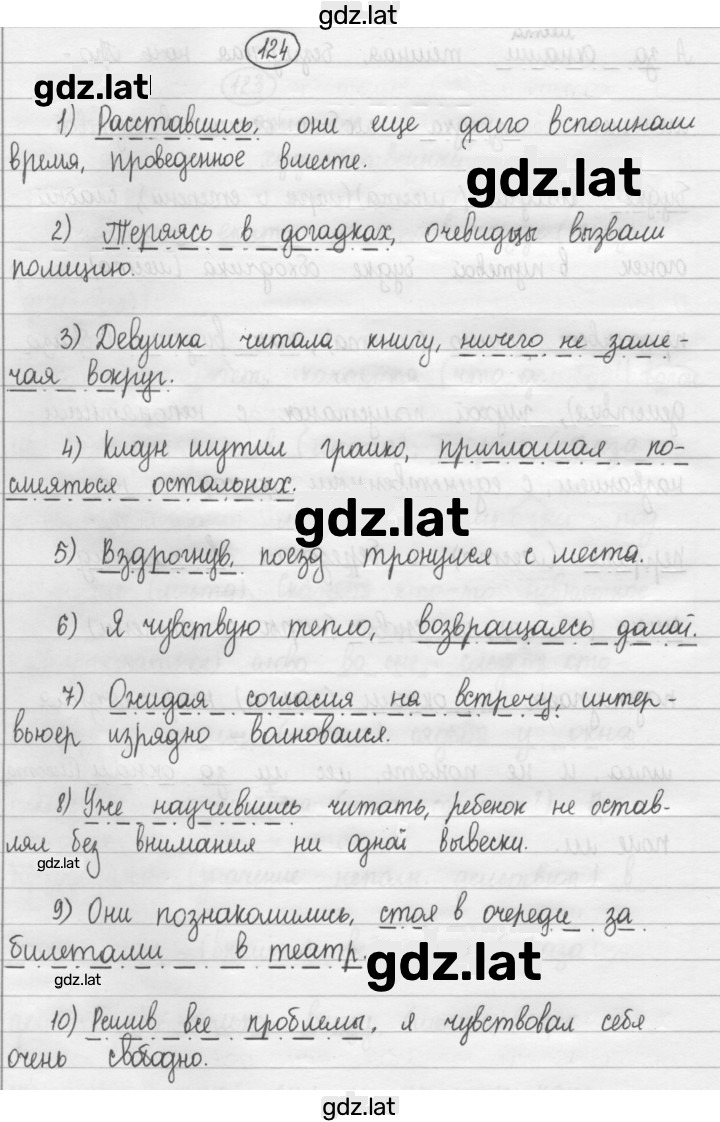 gdz.lat
124
gdz.lat
1) Расставшись, они еще долго вспоминали
время, проведенное вместе.
gdz.lat
2) Теряясь в догадках, очевидцы вызвали
полицию.
3) Девушка читала книгу, ничего не заме-
чая вокруг.
4) Клоун шутил громко, приглашая по-
смеяться остальных.
gdz.lat
5) Вздрогнув, поезд тронулся с места.
6) Я чувствую тепло, возвращаясь домой.
7) Ожидая согласия на встречу, интер-
вьюер изрядно волновался.
8) Уже научившись читать, ребенок не остав-
лял без внимания ни одной вывески.
gdz.lat
9) Они познакомились, стоя в очереди за
билетами в театр.
gdz.lat
10) Решив все проблемы, я чувствовал себя
очень свободно.
gdz.lat